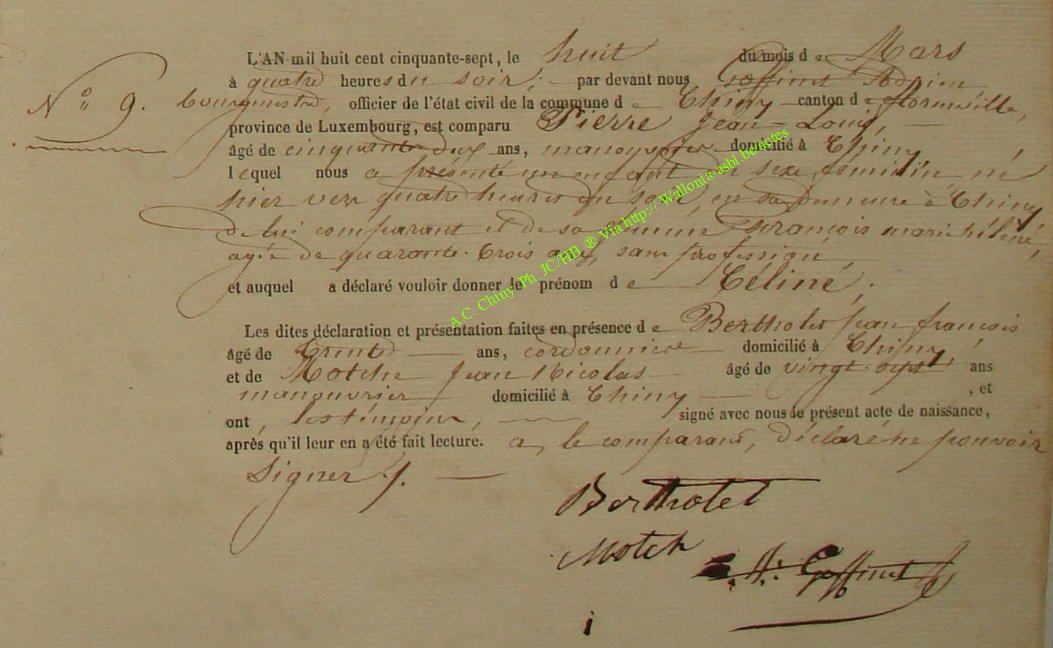 L'AN mil huit cent cinquante-sept, le huit du mois de Mars
N.° 9. à quatre heures du soir; par devant nous Goffinet
bourgmestre, officier de l'état civil de la commune de Chiny canton de florenville,
province de Luxembourg, est comparu Pierre Jean-Louis,
âgé de cinquante deux ans, manouvrier domicilié à Chiny
lequel nous a présenté un enfant du sexe féminin, né
hier vers quatre heures du soir, en sa demeure à Chiny
de lui comparant et de sa femme, François marie hélène,
agée de quarante-trois ans, sans profession,
et auquel a déclaré vouloir donner le prénom de Céline.
Les dites déclaration et présentation faites en présence de Bertholet Jean françois
âgé de trente ans, cordonnier domicilié à Chiny,
et de Motche Jean Nicolas âgé de vingt sept ans
manouvrier domicilié à Chiny , et
ont, les témoins, signé avec nous le présent acte de naissance,
après qu'il leur en a été fait lecture. a, le comparant, déclaré ne pouvoir
signer ./.
Bertholet
Motch
A: Goffinet
A.C. Chiny Ph. JC/HB ® Via http:// Wallonia-asbl.be/actes